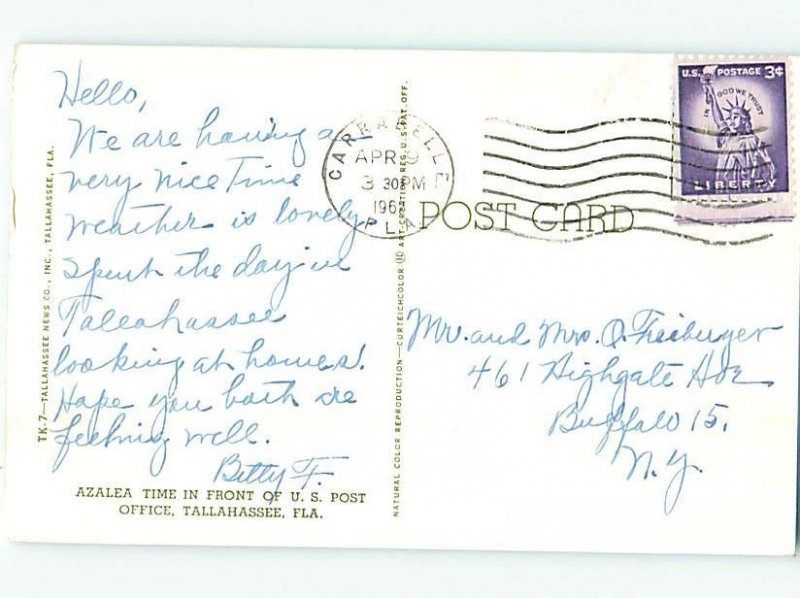 Hello,
We are having a
very nice Time
weather is lovely
spent the day in
Tallahassee
looking at homes.
Hope you both are
feeling well.
Betty F.
AZALEA TIME IN FRONT OF U. S. POST
OFFICE, TALLAHASSEE, FLA.
TK-7—TALLAHASSEE NEWS CO., INC., TALLAHASSEE, FLA.
NATURAL COLOR REPRODUCTION—CURTEICHCOLOR ® ART-CREATION REG. U.S. PAT. OFF.
CARRABELLE
APR 9
3 30PM
196
FLA
POST CARD
U.S. POSTAGE 3¢
IN GOD WE TRUST
LIBERTY
Mr. and Mrs. O. Freiburger
461 Highgate Ave
Buffalo 15,
N.Y.